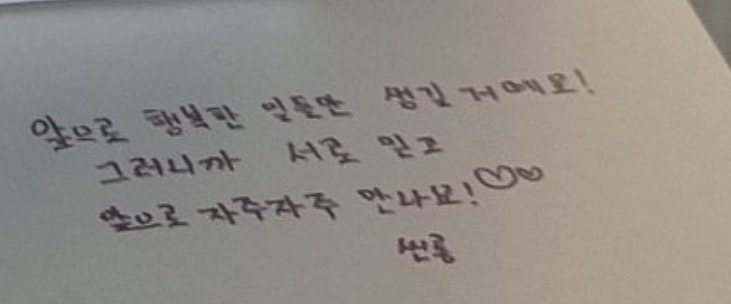 앞으로 행복한 일들만 생길 거예요!
그러니까 서로 믿고
앞으로 자주자주 만나요!♡♡